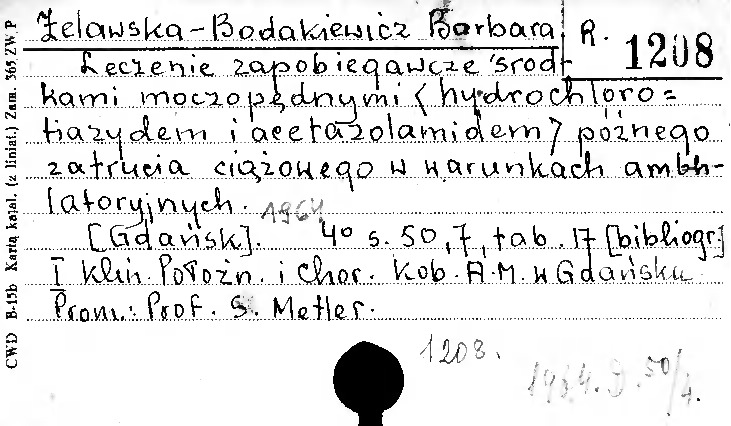 Żelawska-Bodakiewicz Barbara
R. 1208
Leczenie zapobiegawcze środ-
kami moczopędnymi &lt;hydrochloro=
tiazydem i acetazolamidem&gt; późnego
zatrucia ciążowego w warunkach ambu-
latoryjnych. 1964.
[Gdańsk]. 4° s. 50, 7, tab. 17 [bibliogr.]
I Klin. Położn. i Chor. Kob. A.M. w Gdańsku.
Prom.: Prof. S. Metler.
1208.
1964. D. 50/4.
CWD B-15b Karta katal. (z liniat.) Zam. 365 ZW P